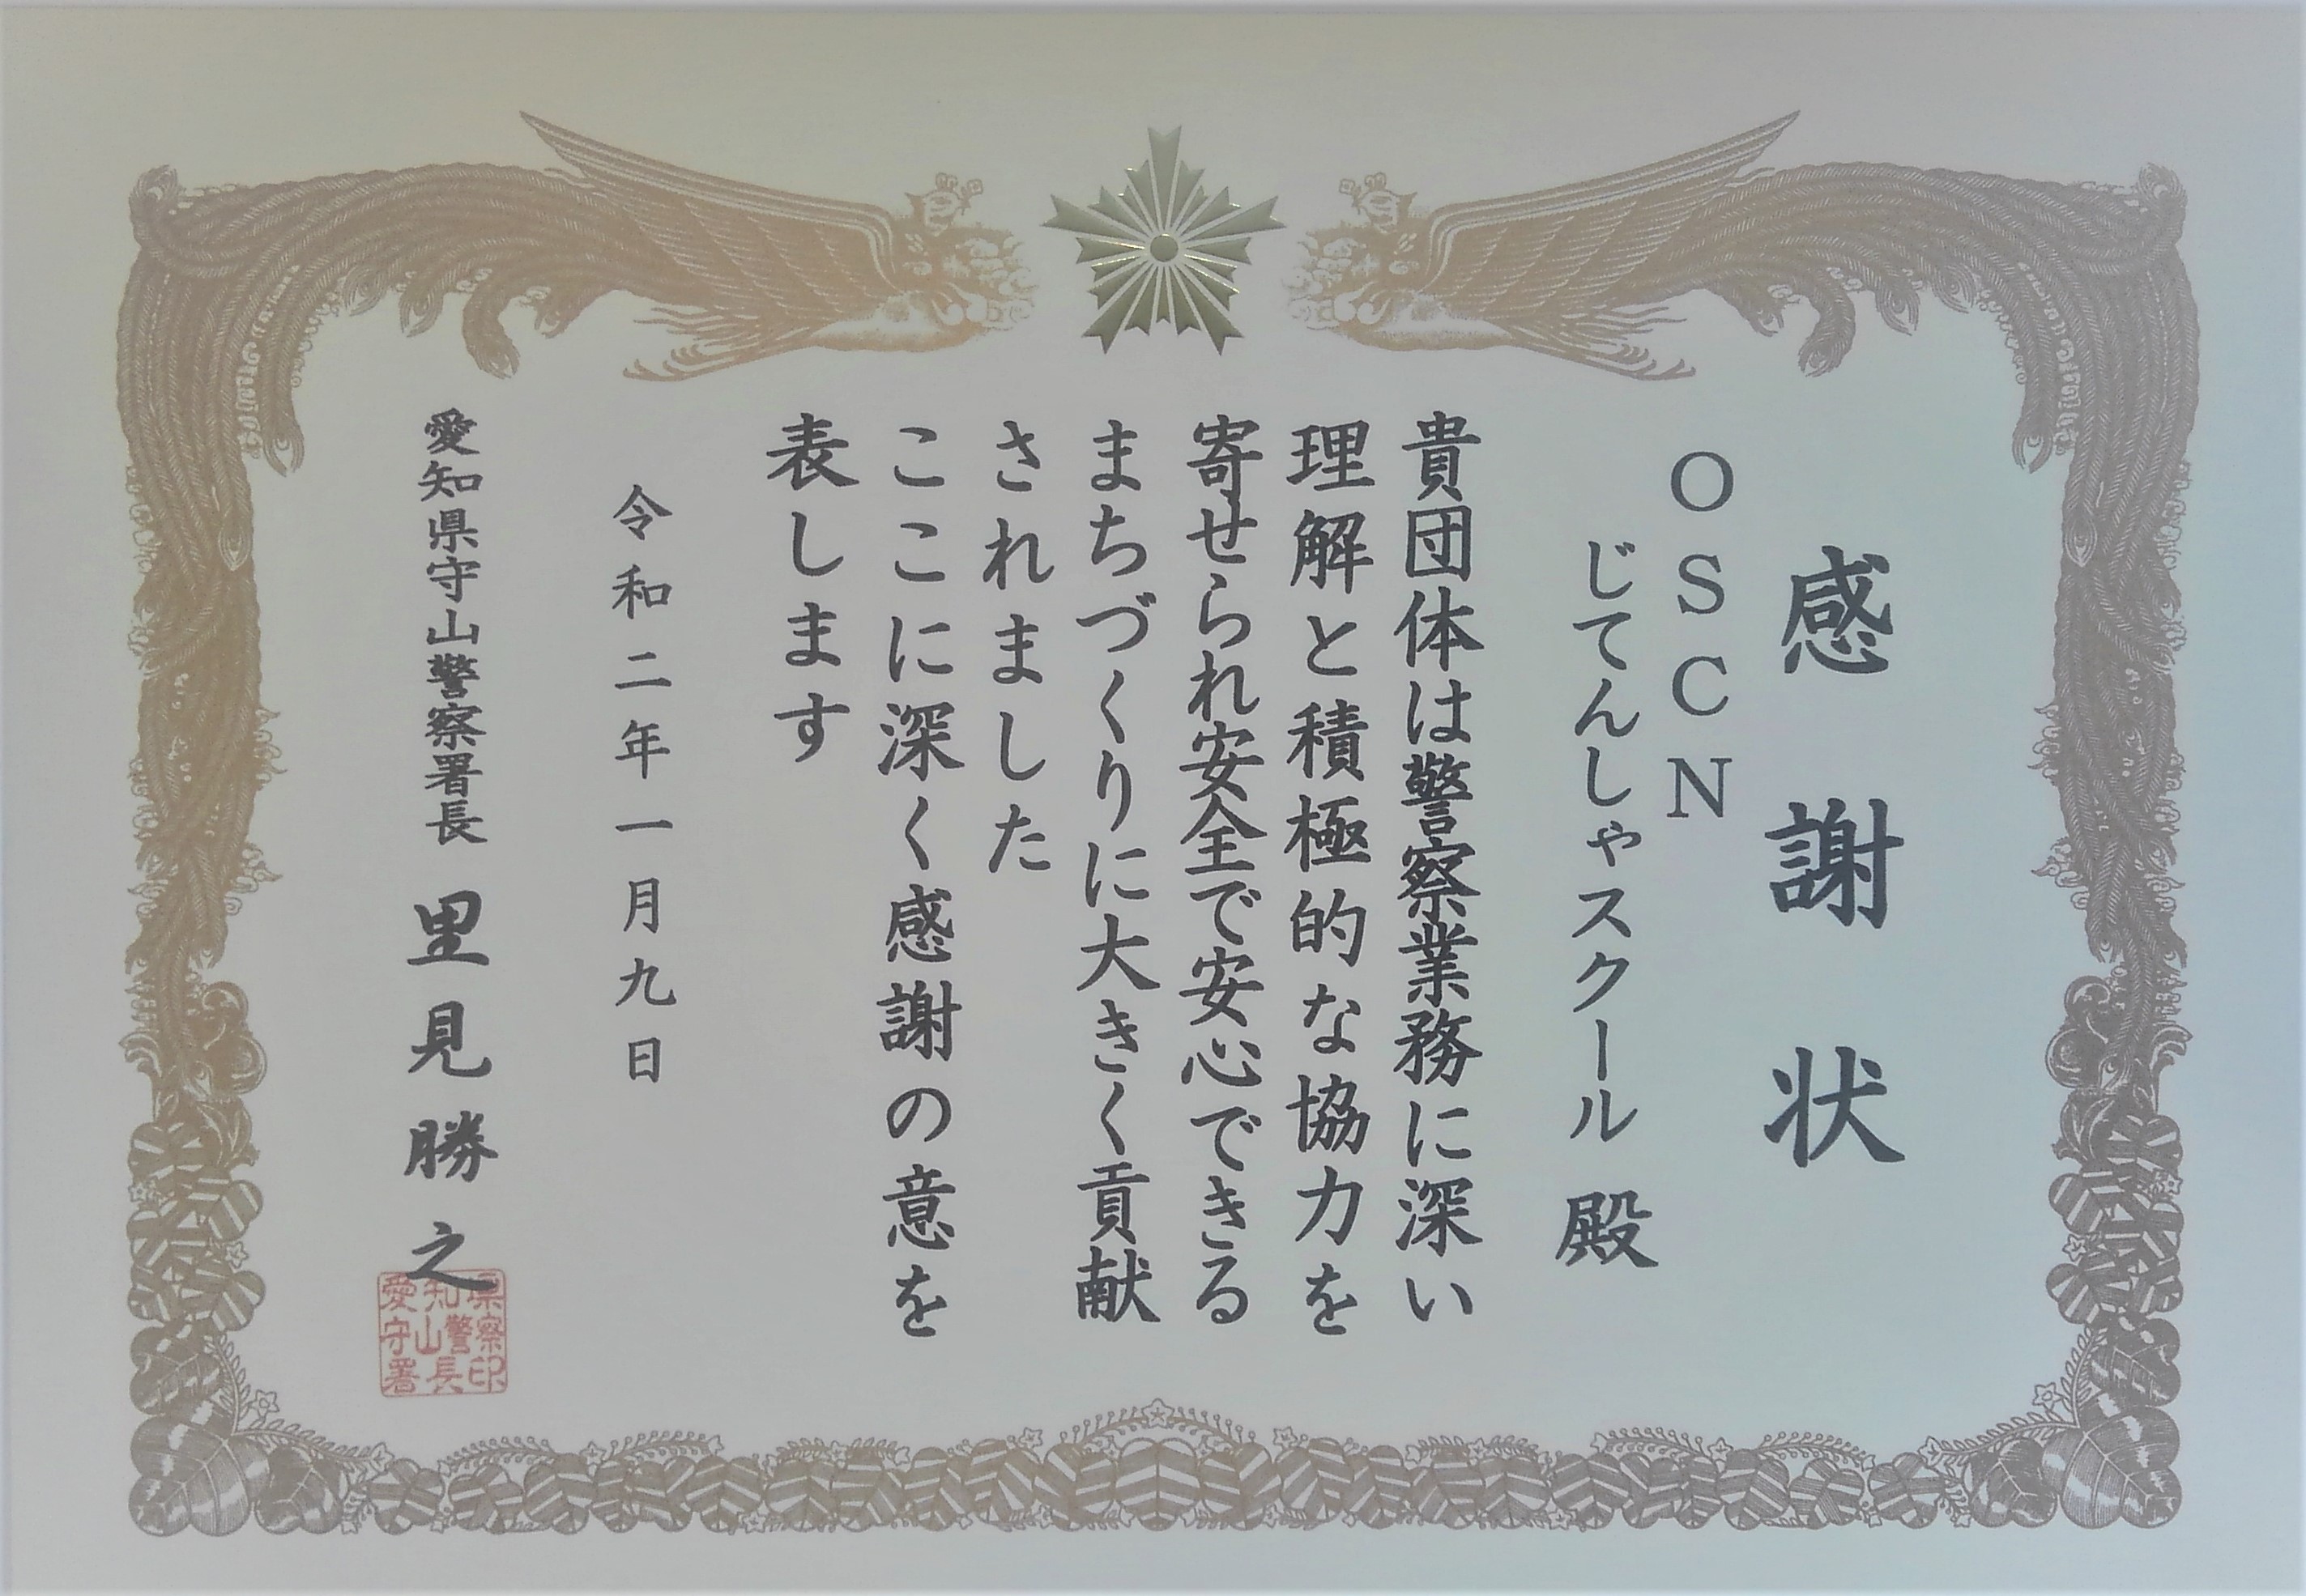 感謝状
OSCN
じてんしゃスクール 殿
貴団体は警察業務に深い
理解と積極的な協力を
寄せられ安全で安心できる
まちづくりに大きく貢献
されました
ここに深く感謝の意を
表します
令和二年一月九日
愛知県守山警察署長 里見勝之
愛知県
守山警察
署長印